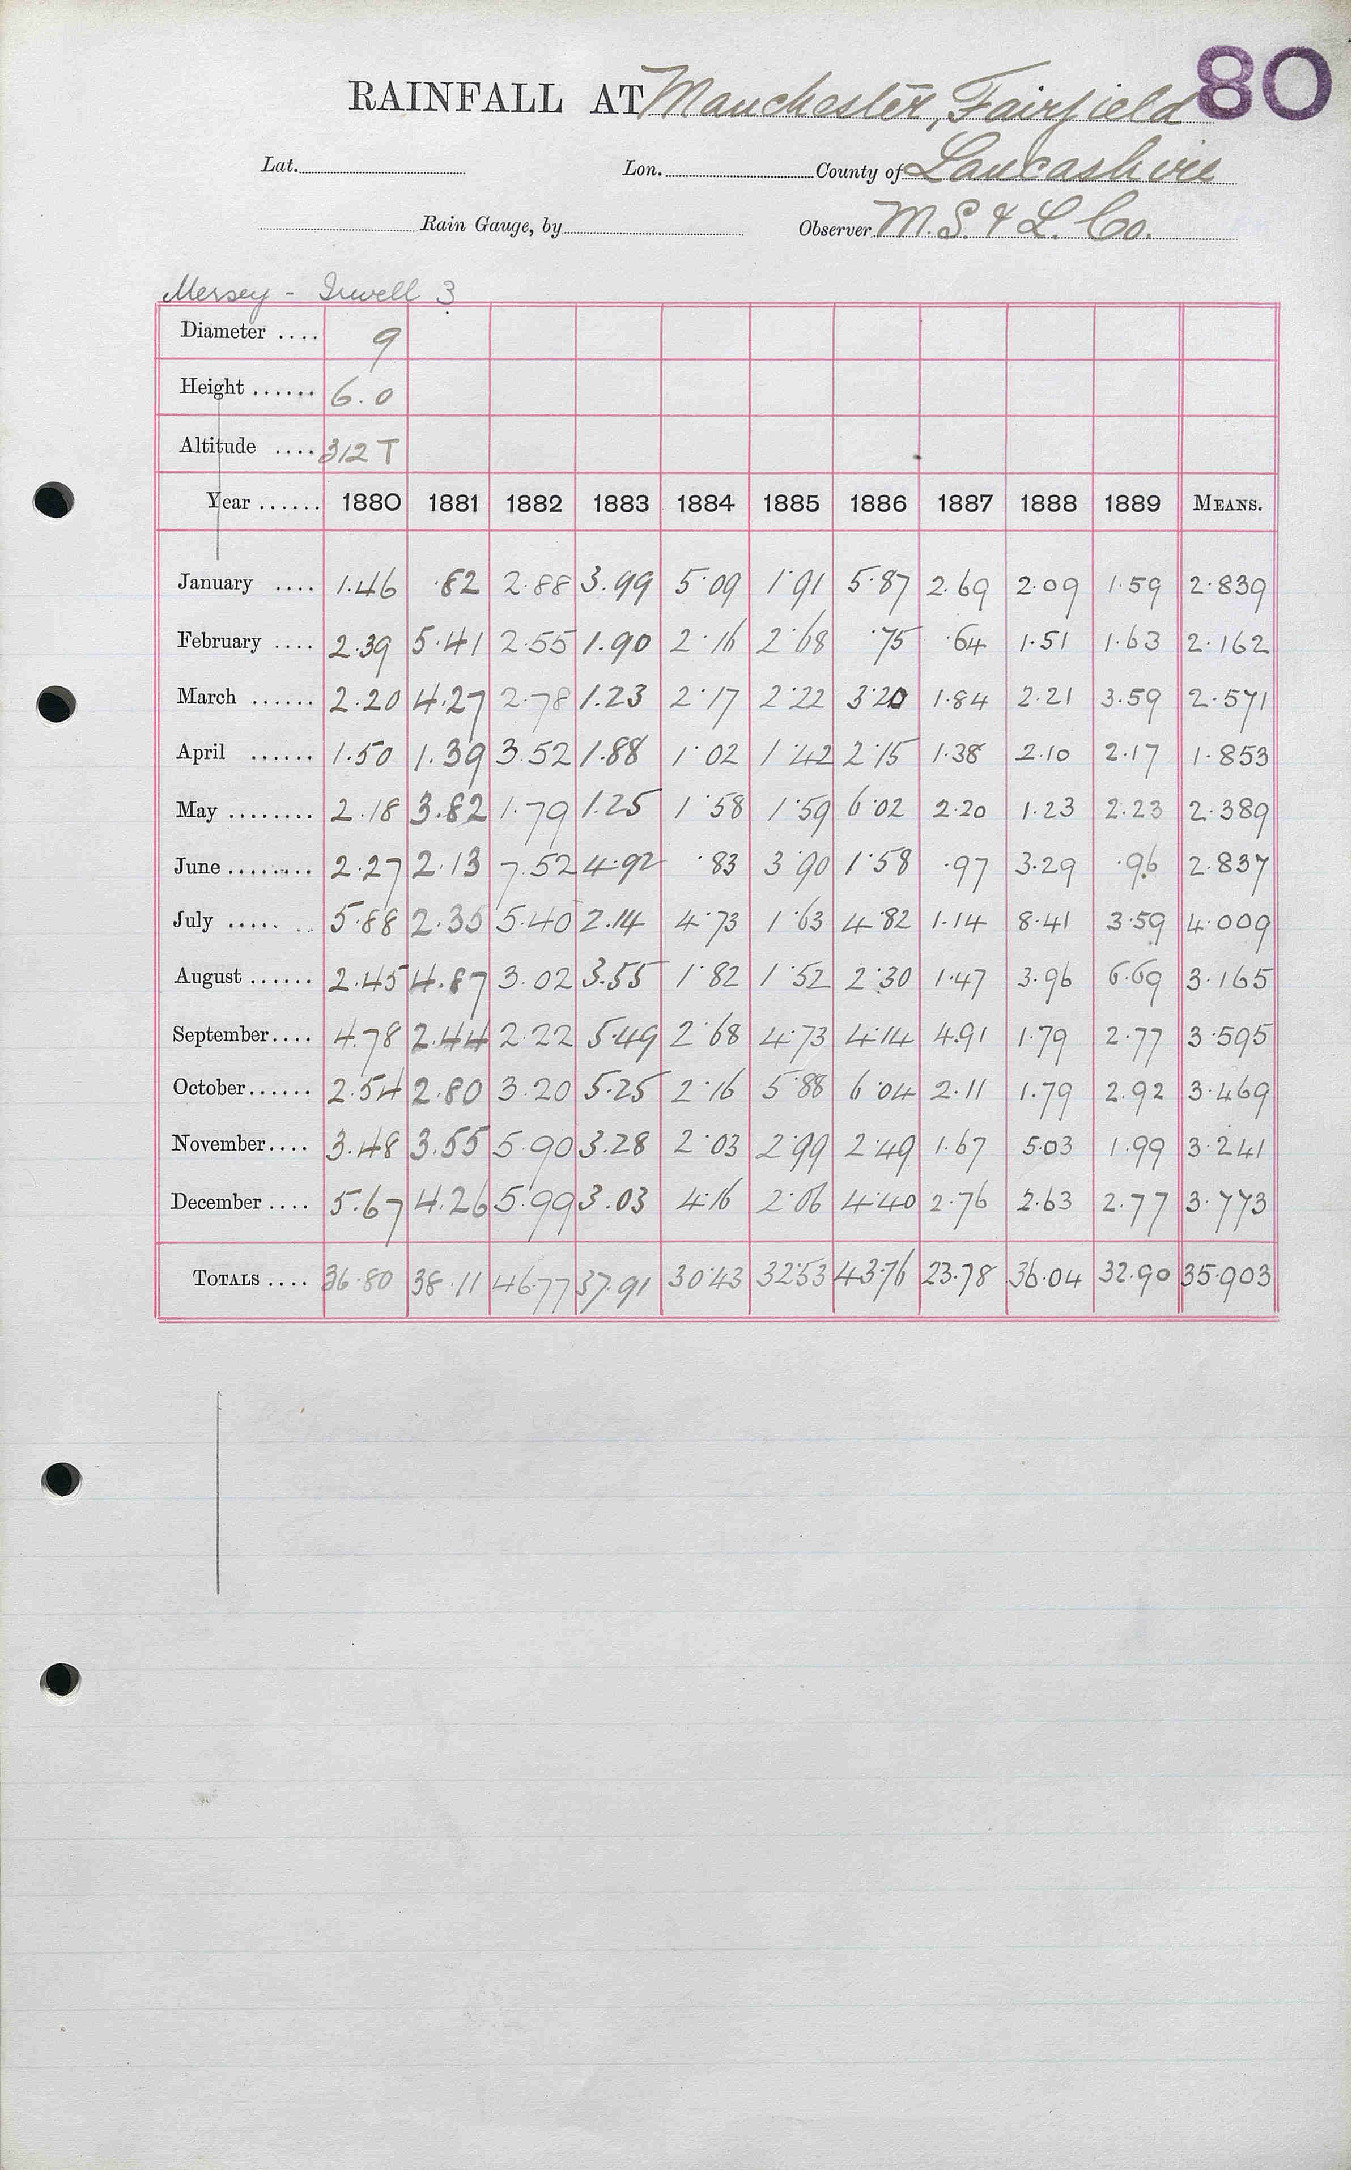 80
RAINFALL AT Manchester, Fairfield
Lat. Lon. County of Lancashire
Rain Gauge, by Observer M. S. & L. Co.
Mersey - Irwell 3
Diameter .... 9
Height ...... 6.0
Altitude .... 312 T
Year ...... 1880 1881 1882 1883 1884 1885 1886 1887 1888 1889 MEANS.
January .... 1.46 .82 2.88 3.99 5.09 1.91 5.87 2.69 2.09 1.59 2.839
February .... 2.39 5.41 2.55 1.90 2.16 2.68 .75 .64 1.51 1.63 2.162
March ...... 2.20 4.27 2.78 1.23 2.17 2.22 3.20 1.84 2.21 3.59 2.571
April ...... 1.50 1.39 3.52 1.88 1.02 1.42 2.15 1.38 2.10 2.17 1.853
May ........ 2.18 3.82 1.79 1.25 1.58 1.59 6.02 2.20 1.23 2.23 2.389
June ........ 2.27 2.13 7.52 4.92 .83 3.90 1.58 .97 3.29 .96 2.837
July ..... .. 5.88 2.35 5.40 2.14 4.73 1.63 4.82 1.14 8.41 3.59 4.009
August ...... 2.45 4.87 3.02 3.55 1.82 1.52 2.30 1.47 3.96 6.69 3.165
September .... 4.78 2.44 2.22 5.49 2.68 4.73 4.14 4.91 1.79 2.77 3.595
October ...... 2.54 2.80 3.20 5.25 2.16 5.88 6.04 2.11 1.79 2.92 3.469
November .... 3.48 3.55 5.90 3.28 2.03 2.99 2.49 1.67 5.03 1.99 3.241
December .... 5.67 4.26 5.99 3.03 4.16 2.06 4.40 2.76 2.63 2.77 3.773
TOTALS .... 36.80 38.11 46.77 37.91 30.43 32.53 43.76 23.78 36.04 32.90 35.903